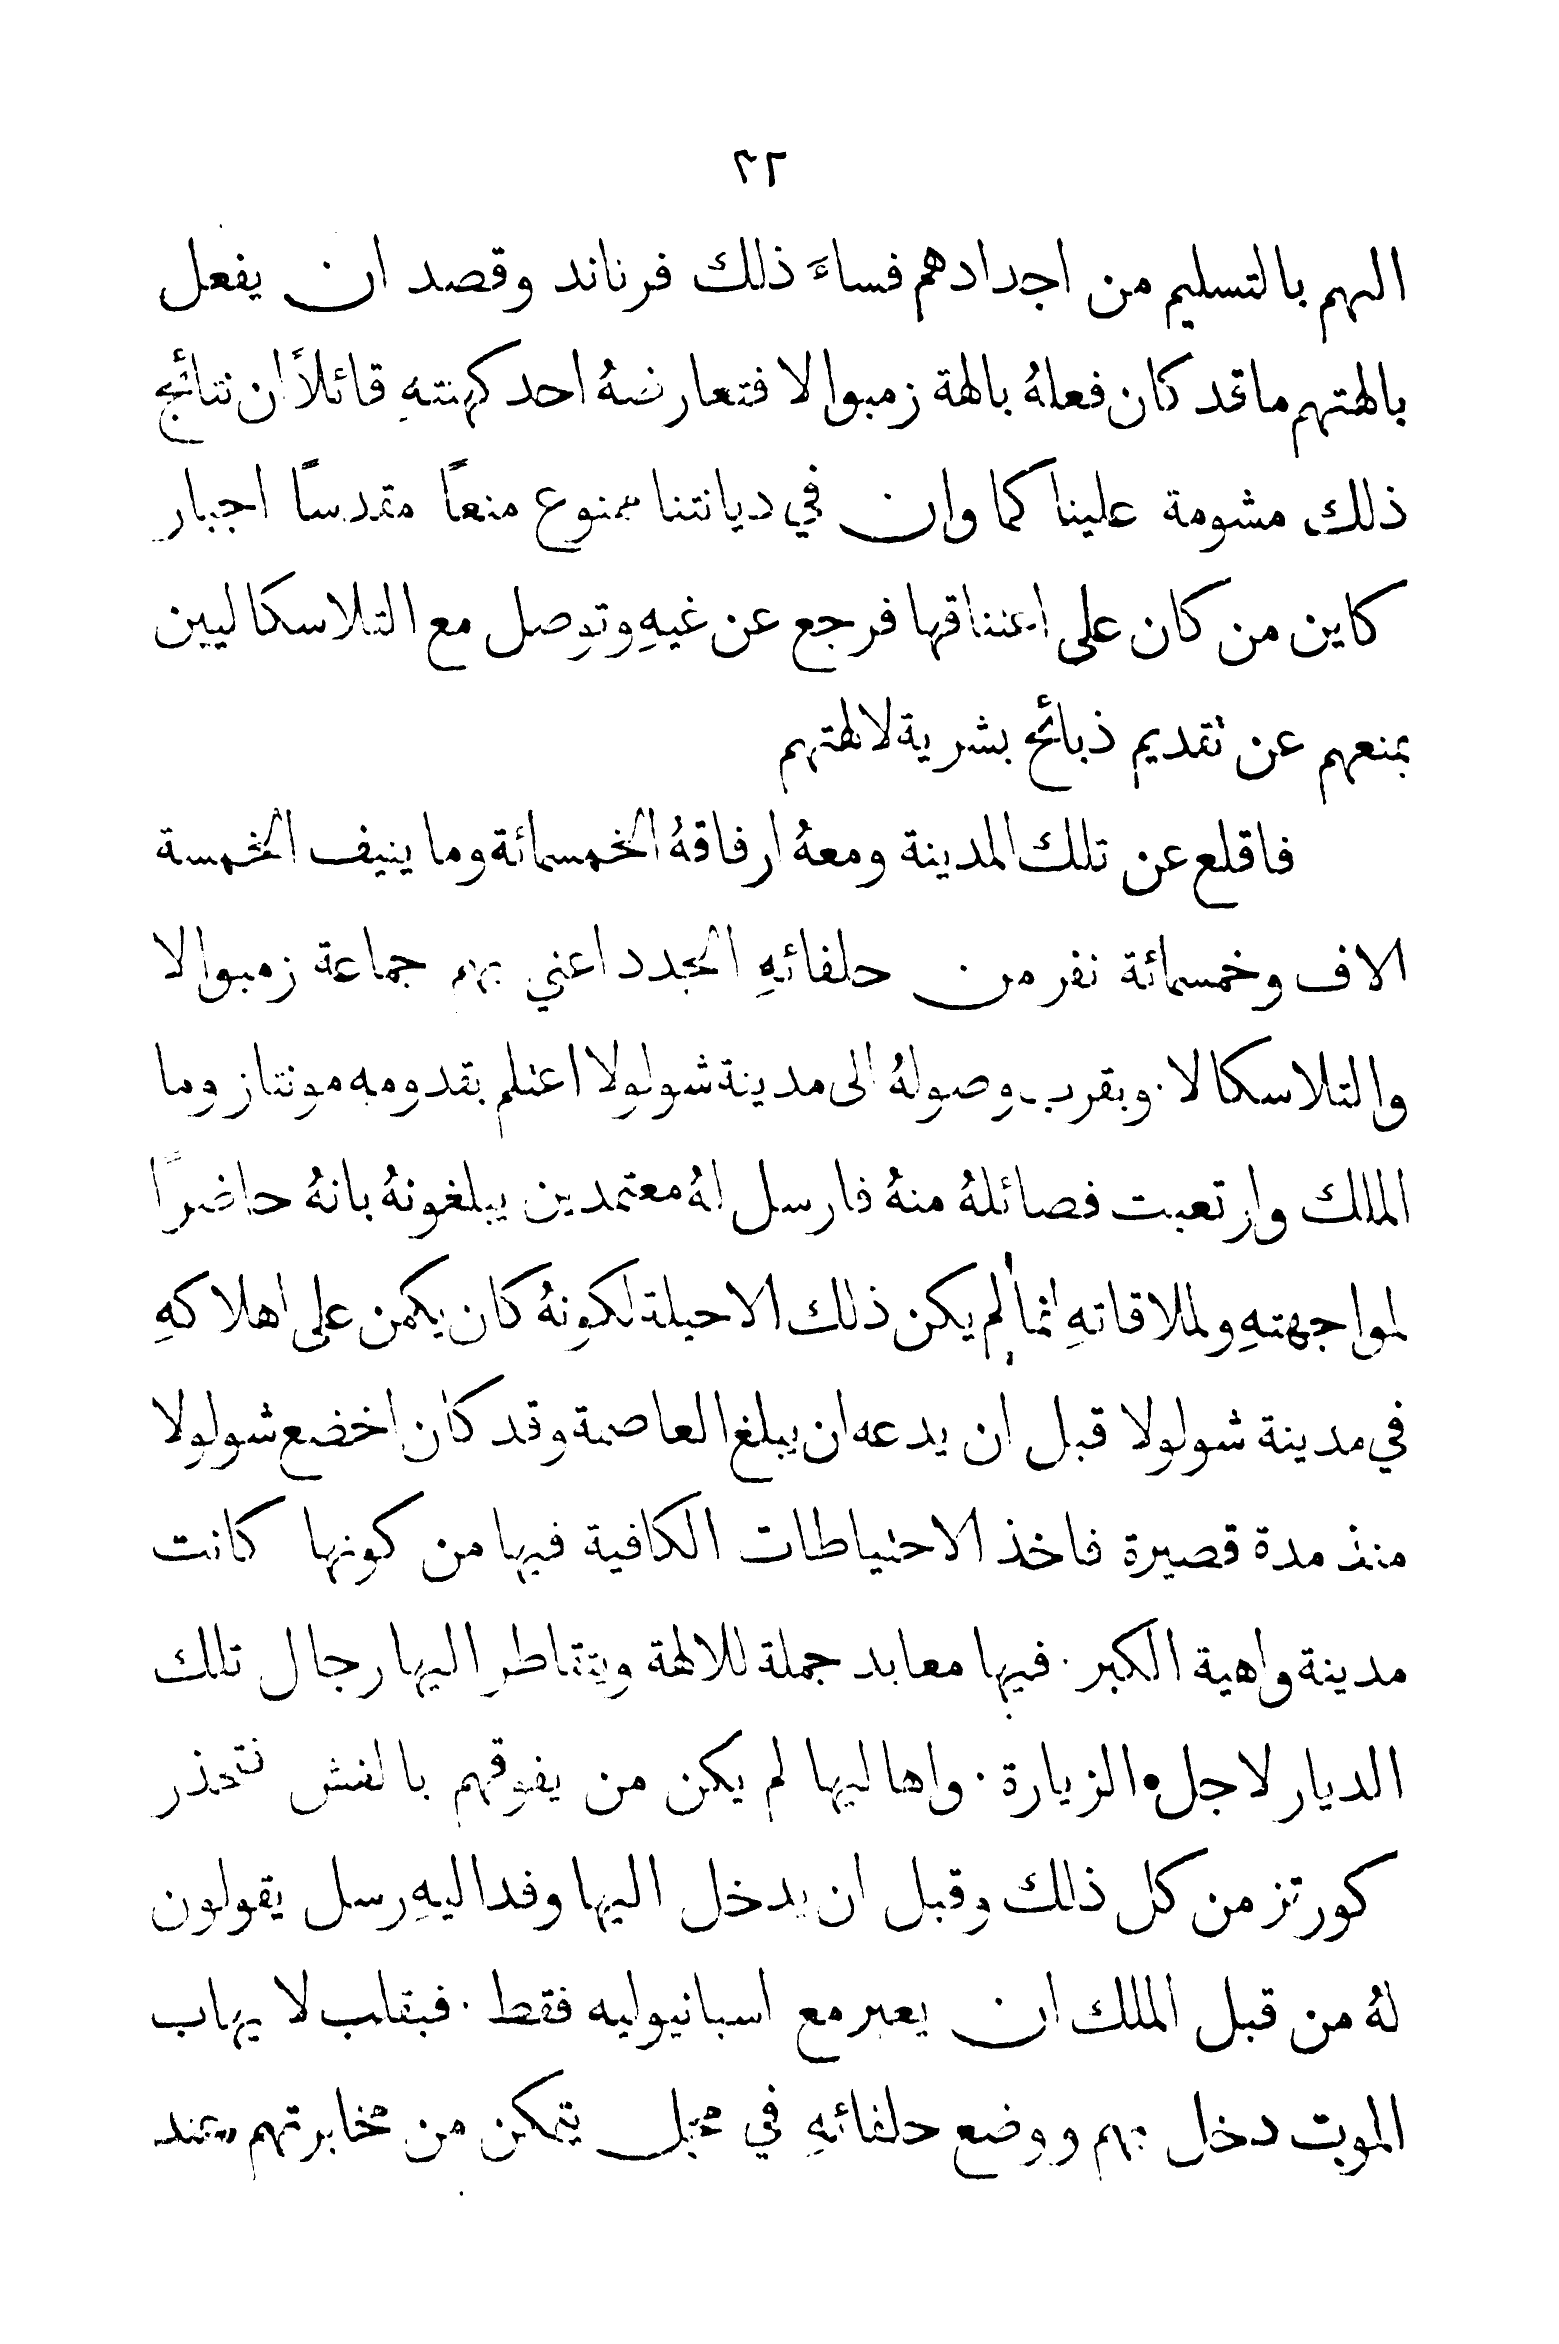 ٢٢
اليهم بالتسليم من اجدادهم فساءَ ذلك فرناند وقصد ان يفعل
بالهتهم ما قد كان فعلهُ بالهة زمبوالا فتعارضهُ احد كهنتهِ قائلاً ان نتائج
ذلك مشومة علينا كما وان في ديانتنا ممنوع منعاً مقدساً اجبار
كاين من كان على اعتناقها فرجع عن غيهِ وتوصل مع التلاسكاليين
بمنعهم عن تقديم ذبائح بشرية لالهتهم
فاقلع عن تلك المدينة ومعهُ ارفاقهُ الخمسمائة وما ينيف الخمسة
الاف وخمسمائة نفر من حلفائهِ الجدد اعني بهم جماعة زمبوالا
والتلاسكالا. وبقرب وصولهُ الى مدينة شولولا اعتلم بقدومه مونتازوما
الملك وارتعبت فصائلهُ منهُ فارسل لهُ معتمدين يبلغونهُ بانهُ حاضراً
لمواجهتهِ ولملاقاتهِ انما لم يكن ذلك الا حيلة لكونهُ كان يكمن على اهلاكهِ
في مدينة شولولا قبل ان يدعه ان يبلغ العاصمة وقد كان اخضع شولولا
منذ مدة قصيرة فاخذ الاحتياطات الكافية فيها من كونها كانت
مدينة واهية الكبر. فيها معابد جملة للالهة ويتقاطر اليها رجال تلك
الديار لاجل الزيارة. واهاليها لم يكن من يفوقهم بالغش فتحذر
كورتز من كل ذلك وقبل ان يدخل اليها وفد اليهِ رسل يقولون
لهُ من قبل الملك ان يعبر مع اسبانيوليه فقط. فبقلب لا يهاب
الموت دخل بهم ووضع حلفائهِ في محل يتمكن من مخابرتهم عند